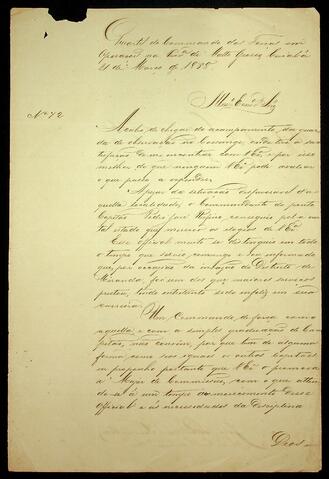 Quartel do Commando das Forças em
Operações na Prov.ª de Matto Grosso, Cuiabá
21 de Março de 1868
Illmo Exmo Snr
Nº 72
Acabo de chegar do acampamento da guar
da de observação no
de me encontrar com V.Ex.ª, e por isso
melhor do que ninguem V.Ex.ª pode avaliar
o que passo a expender.
Apezar da situação desfavoravel da
quella localidade, o Commandante do ponto
Capitão Pedro José Rufino conseguio pelo
tal estado que mereceu os elogios de V.Ex.ª
Esse official muito se distinguio em todo
o tempo que servio comigo e sou informado
que por occasião da invasão do Districto de
Miranda, foi um dos que maiores serviços
prestou, tendo entretanto sido infeliz em sua
carreira.
Um Commando de força como
aquella e com a simples graduação de Ca
pitão, não convem, por que tem de alguma
forma como seus iguaes os outros Capitães
proponho portanto que V.Ex.ª o promova
a Major de Commissão, com o que atten
de-se á um tempo ao merecimento desse
Official e ás necessidades da disciplina
Deos